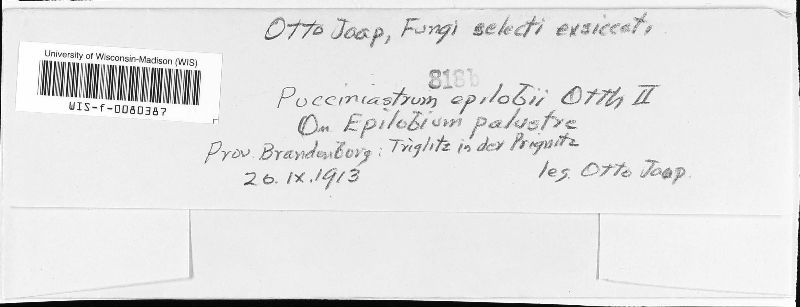 Otto Jaap, Fungi selecti exsiccat.
University of Wisconsin-Madison (WIS)
WIS-f-0080387
818b
Pucciniastrum epilobii Otth II
On Epilobium palustre
Prov. Brandenborg: Triglitz in der Prignitz
20.IX.1913 leg. Otto Jaap.